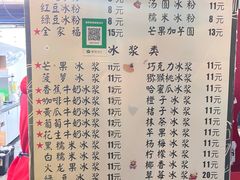 红豆冰粉 8元 汤圆冰粉 8元
绿豆冰粉 8元 糯米冰粉 8元
★全家福 15元 芒果加芋圆 13元
冰浆类
★芒果冰浆 13元 巧克力冰浆 11元
菠萝冰浆 11元 猕猴桃冰浆 11元
★香蕉牛奶冰浆 12元 哈密瓜冰浆 11元
★咖啡牛奶冰浆 12元 橙子冰浆 11元
★黄瓜牛奶冰浆 12元 桔子冰浆 11元
★葡萄牛奶冰浆 12元 绿茶冰浆 11元
★花生牛奶冰浆 12元 冰浆 11元
★黑糯米冰浆 11元 杨梅冰浆 11元
白糯米冰浆 11元 柠檬冰浆 11元
火龙果冰浆 11元 椰香冰浆 11元
冰浆 11元 草莓冰浆 20元